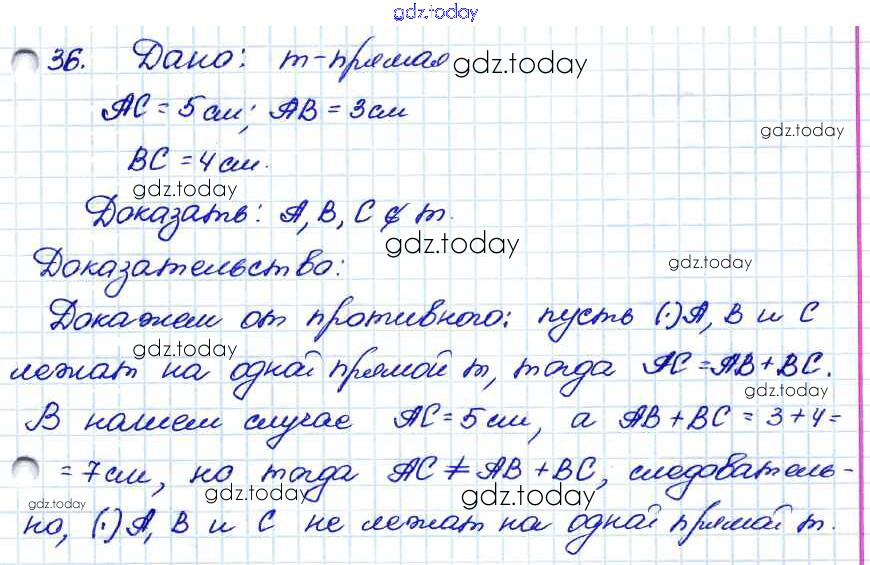 gdz.today
36. Дано: m-прямая gdz.today
AC = 5 см; AB = 3 см
gdz.today
BC = 4 см.
gdz.today
Доказать: A, B, C ∉ m.
gdz.today
Доказательство:
gdz.today
Докажем от противного: пусть (·)A, B и C
gdz.today
лежат на одной прямой m, тогда AC = AB + BC.
gdz.today
В нашем случае AC = 5 см, а AB + BC = 3 + 4 =
= 7 см, но тогда AC ≠ AB + BC, следователь-
gdz.today gdz.today gdz.today
но, (·)A, B и C не лежат на одной прямой m.